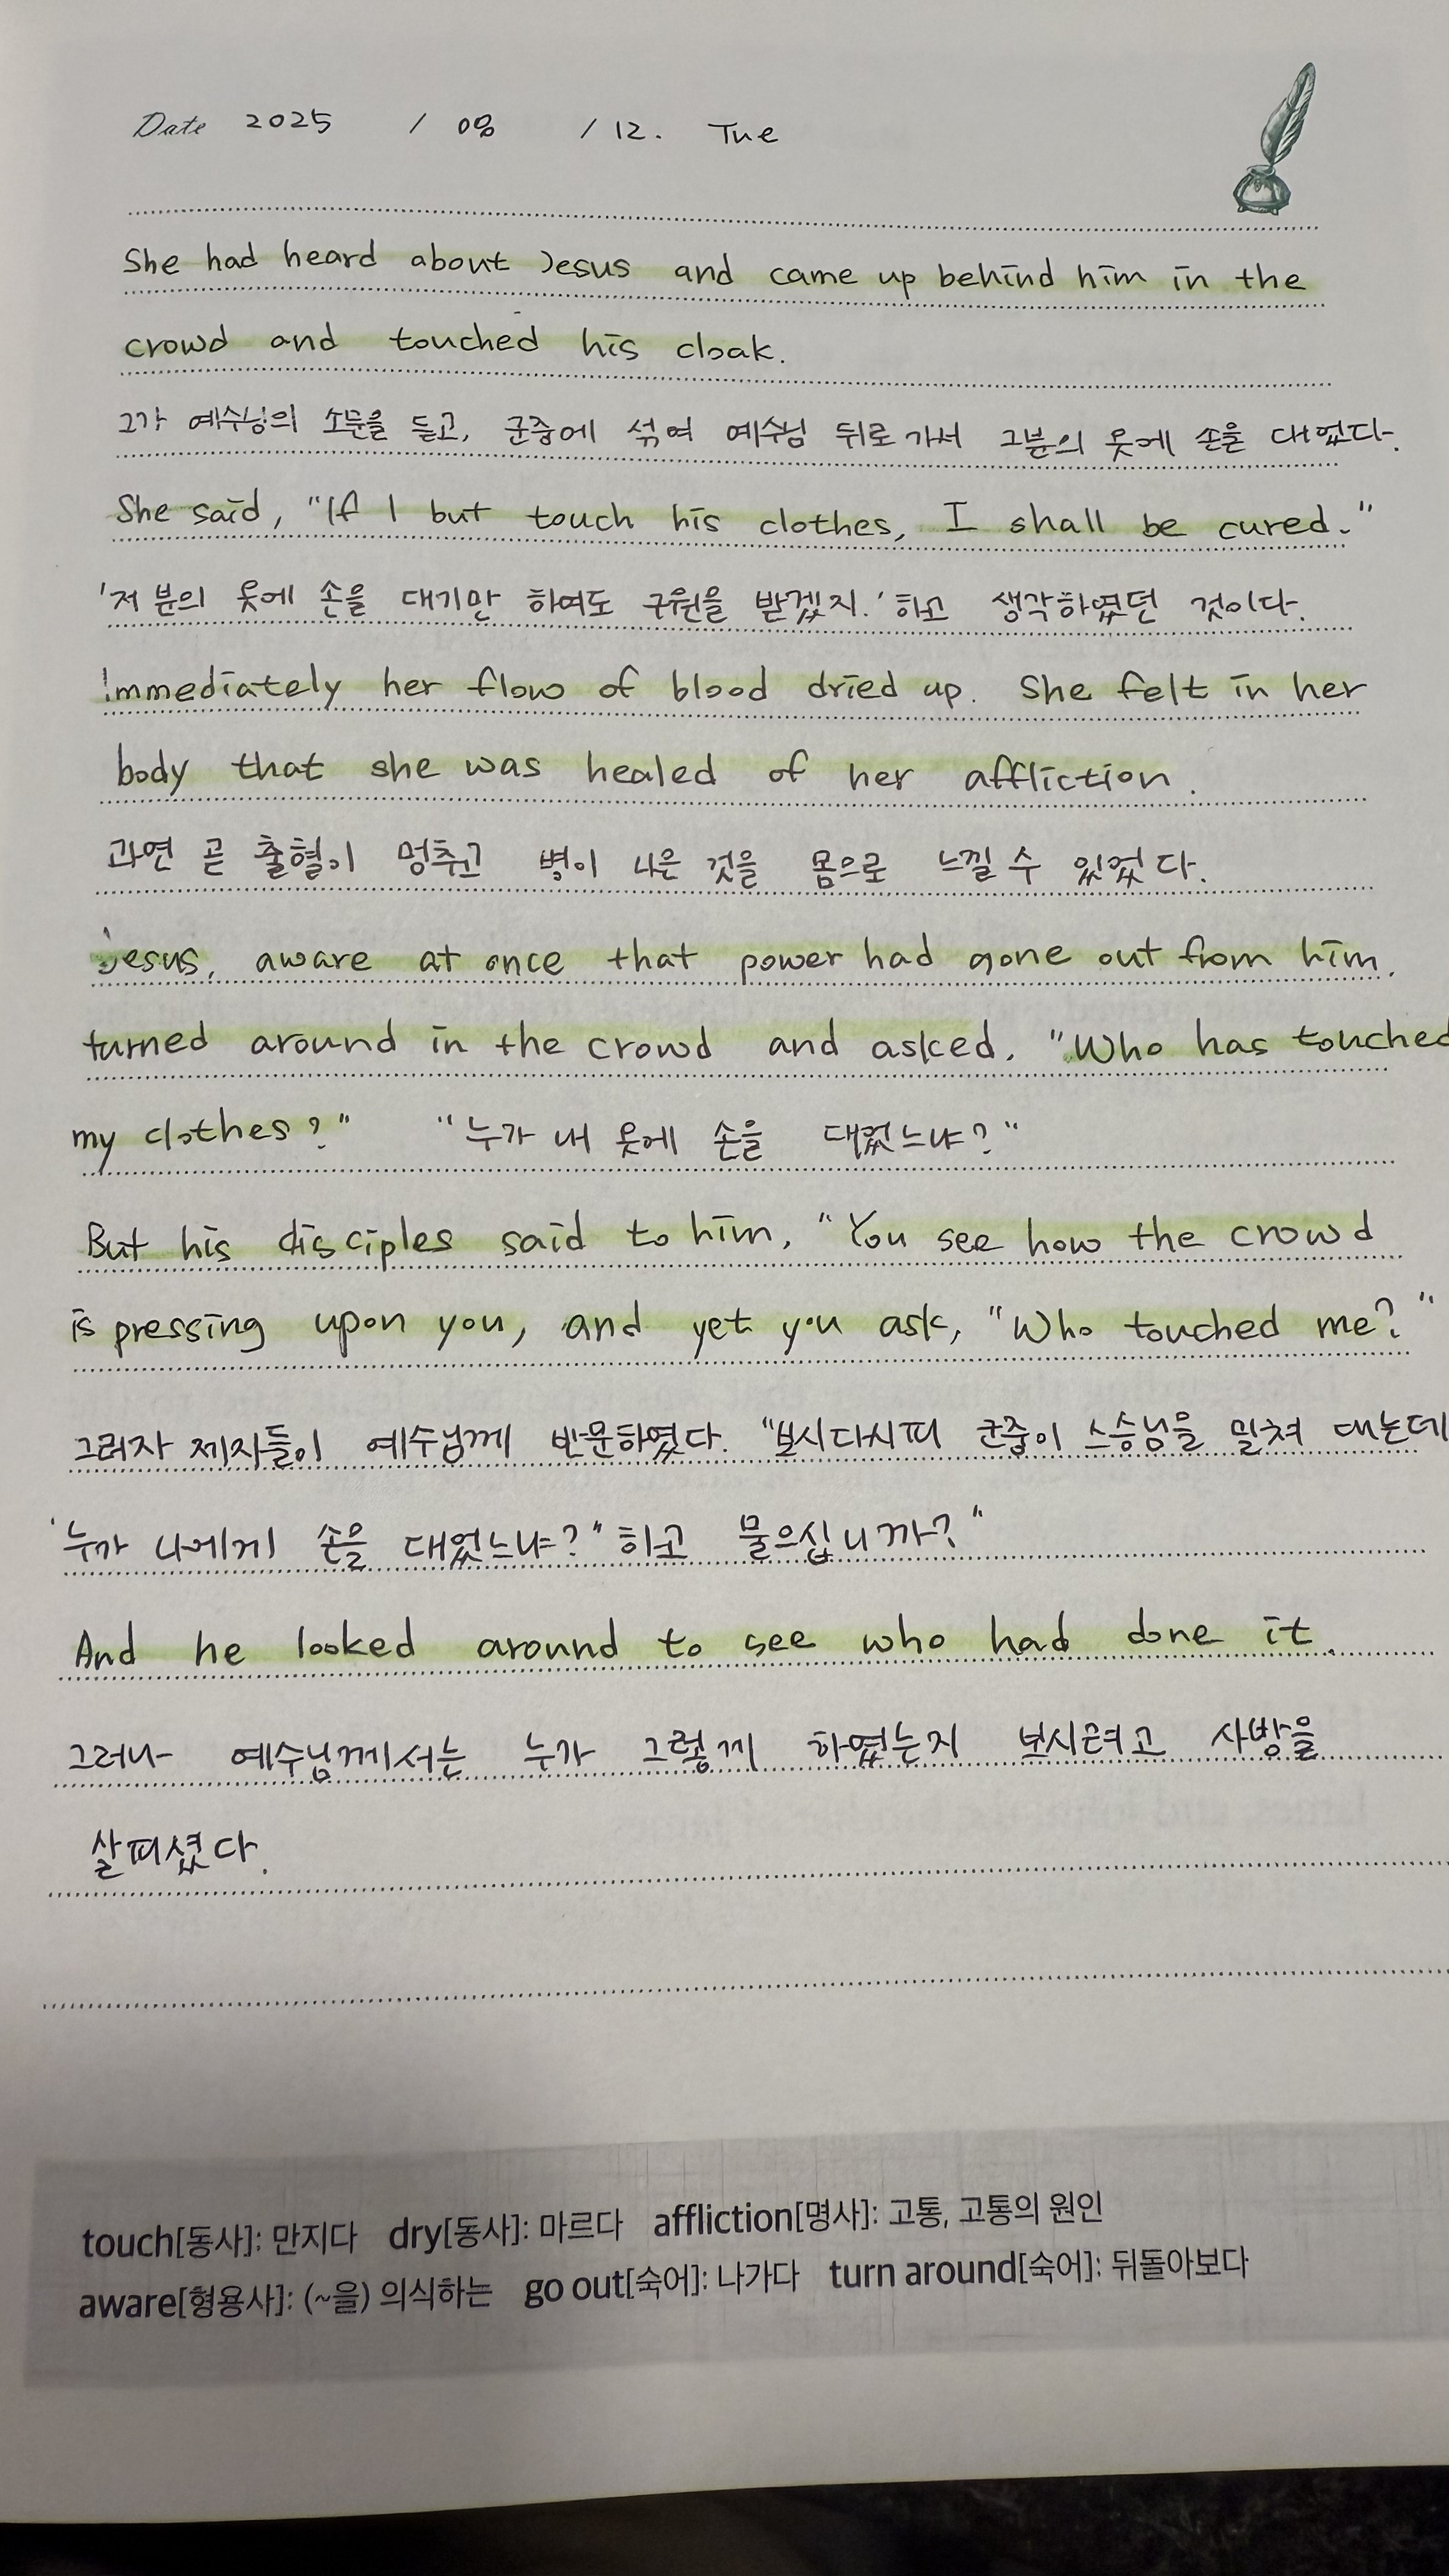 Date 2025 / 08 / 12. Tue
She had heard about Jesus and came up behind him in the
crowd and touched his cloak.
그가 예수님의 소문을 듣고, 군중에 섞여 예수님 뒤로 가서 그분의 옷에 손을 대었다.
She said, "If I but touch his clothes, I shall be cured."
'저 분의 옷에 손을 대기만 하여도 구원을 받겠지.' 하고 생각하였던 것이다.
Immediately her flow of blood dried up. She felt in her
body that she was healed of her affliction.
과연 곧 출혈이 멈추고 병이 나은 것을 몸으로 느낄 수 있었다.
Jesus, aware at once that power had gone out from him,
turned around in the crowd and asked, "Who has touched
my clothes?" "누가 내 옷에 손을 대었느냐?"
But his disciples said to him, "You see how the crowd
is pressing upon you, and yet you ask, "Who touched me?"
그러자 제자들이 예수님께 반문하였다. "보시다시피 군중이 스승님을 밀쳐 대는데
'누가 나에게 손을 대었느냐?" 하고 물으십니까?"
And he looked around to see who had done it.
그러나 예수님께서는 누가 그렇게 하였는지 보시려고 사방을
살피셨다.
touch[동사]: 만지다 dry[동사]: 마르다 affliction[명사]: 고통, 고통의 원인
aware[형용사]: (~을) 의식하는 go out[숙어]: 나가다 turn around[숙어]: 뒤돌아보다